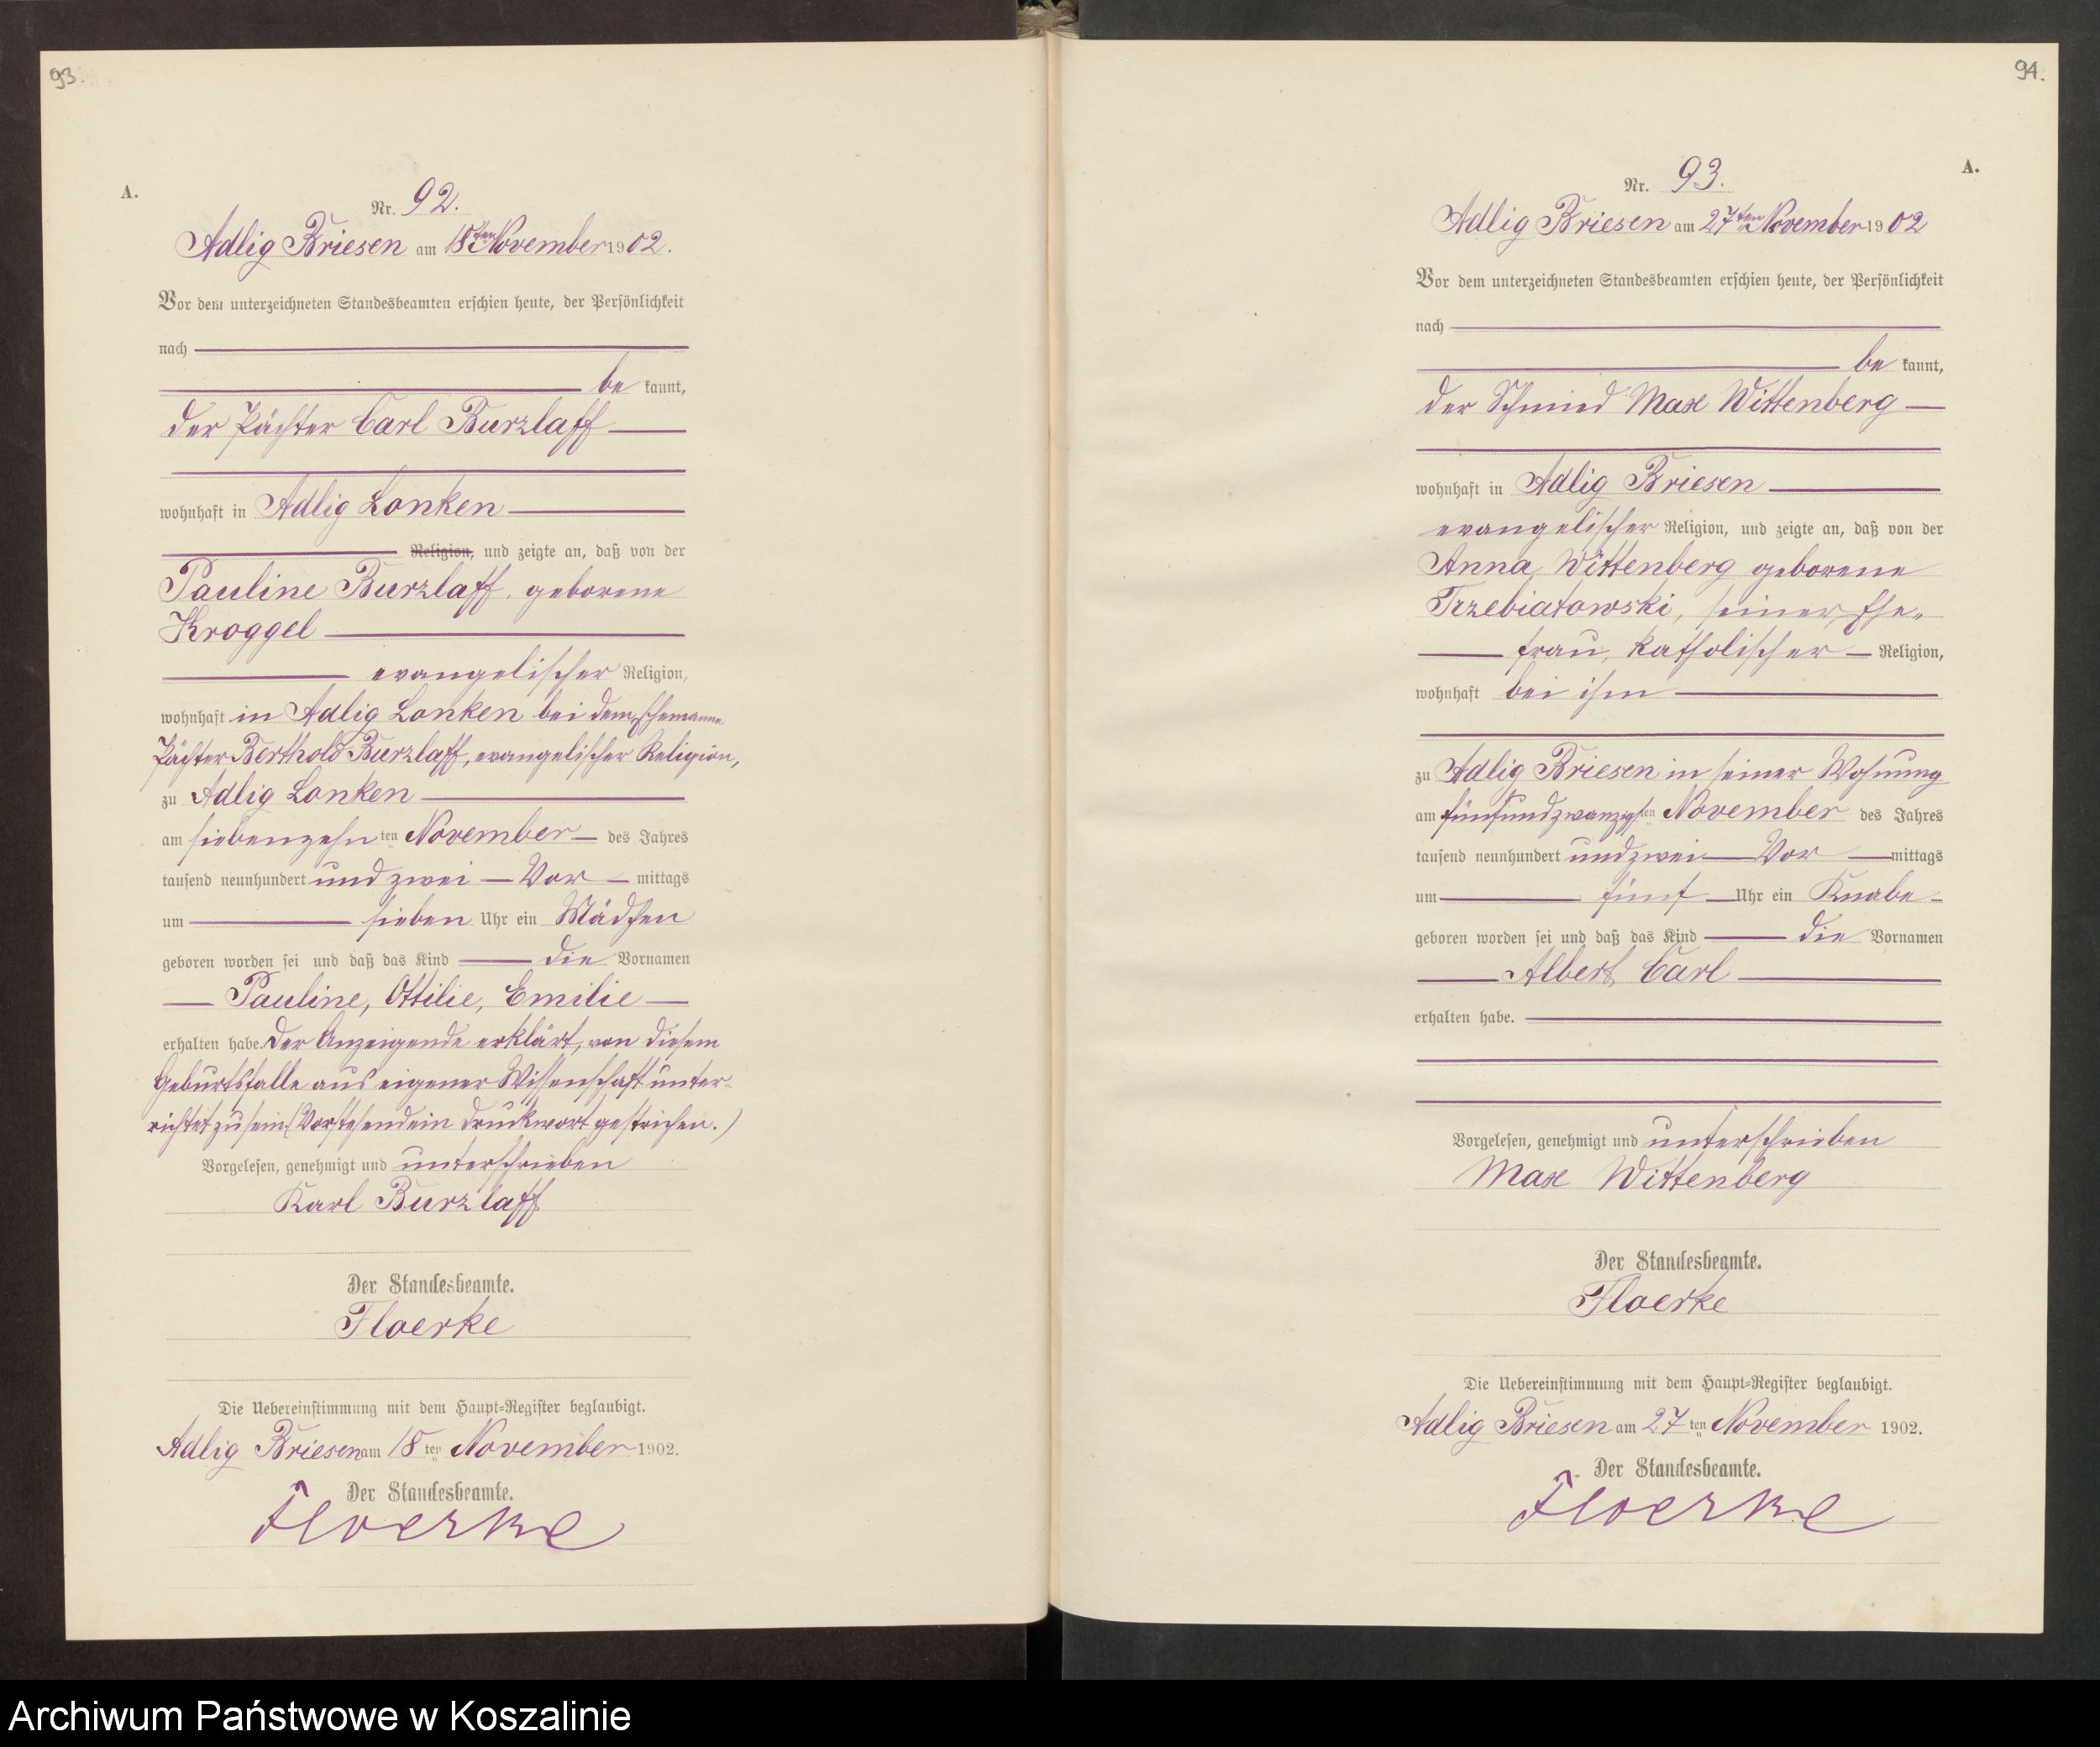 93.
A.
Nr. 92.
Adlig Briesen am 18ten November 1902.
Vor dem unterzeichneten Standesbeamten erschien heute, der Persönlichkeit
nach
be kannt,
der Pächter Carl Burzlaff
wohnhaft in Adlig Lonken
Religion, und zeigte an, daß von der
Pauline Burzlaff, geborene
Kroggel
evangelischer Religion,
wohnhaft in Adlig Lonken bei dem Ehemanne
Pächter Berthold Burzlaff, evangelischer Religion,
zu Adlig Lonken
am siebenzehnten November des Jahres
tausend neunhundert und zwei Vor mittags
um sieben Uhr ein Mädchen
geboren worden sei und daß das Kind die Vornamen
Pauline, Ottilie, Emilie
erhalten habe. Der Anzeigende erklärt, von diesem
Geburtsfalle aus eigener Wissenschaft unter-
richtet zu sein. (Vorstehend ein Druckwort gestrichen.)
Vorgelesen, genehmigt und unterschrieben
Karl Burzlaff
Der Standesbeamte.
Floerke
Die Uebereinstimmung mit dem Haupt-Register beglaubigt.
Adlig Briesen am 18ten November 1902.
Der Standesbeamte.
Floerke
94.
A.
Nr. 93.
Adlig Briesen am 27ten November 1902
Vor dem unterzeichneten Standesbeamten erschien heute, der Persönlichkeit
nach
be kannt,
der Schmied Max Wittenberg
wohnhaft in Adlig Briesen
evangelischer Religion, und zeigte an, daß von der
Anna Wittenberg geborene
Trzebiatowski, seiner Ehe-
frau, katholischer Religion,
wohnhaft bei ihm
zu Adlig Briesen in seiner Wohnung
am fünfundzwanzigsten November des Jahres
tausend neunhundert und zwei Vor mittags
um fünf Uhr ein Knabe
geboren worden sei und daß das Kind die Vornamen
Albert Carl
erhalten habe.
Vorgelesen, genehmigt und unterschrieben
Max Wittenberg
Der Standesbeamte.
Floerke
Die Uebereinstimmung mit dem Haupt-Register beglaubigt.
Adlig Briesen am 27ten November 1902.
Der Standesbeamte.
Floerke
Archiwum Państwowe w Koszalinie